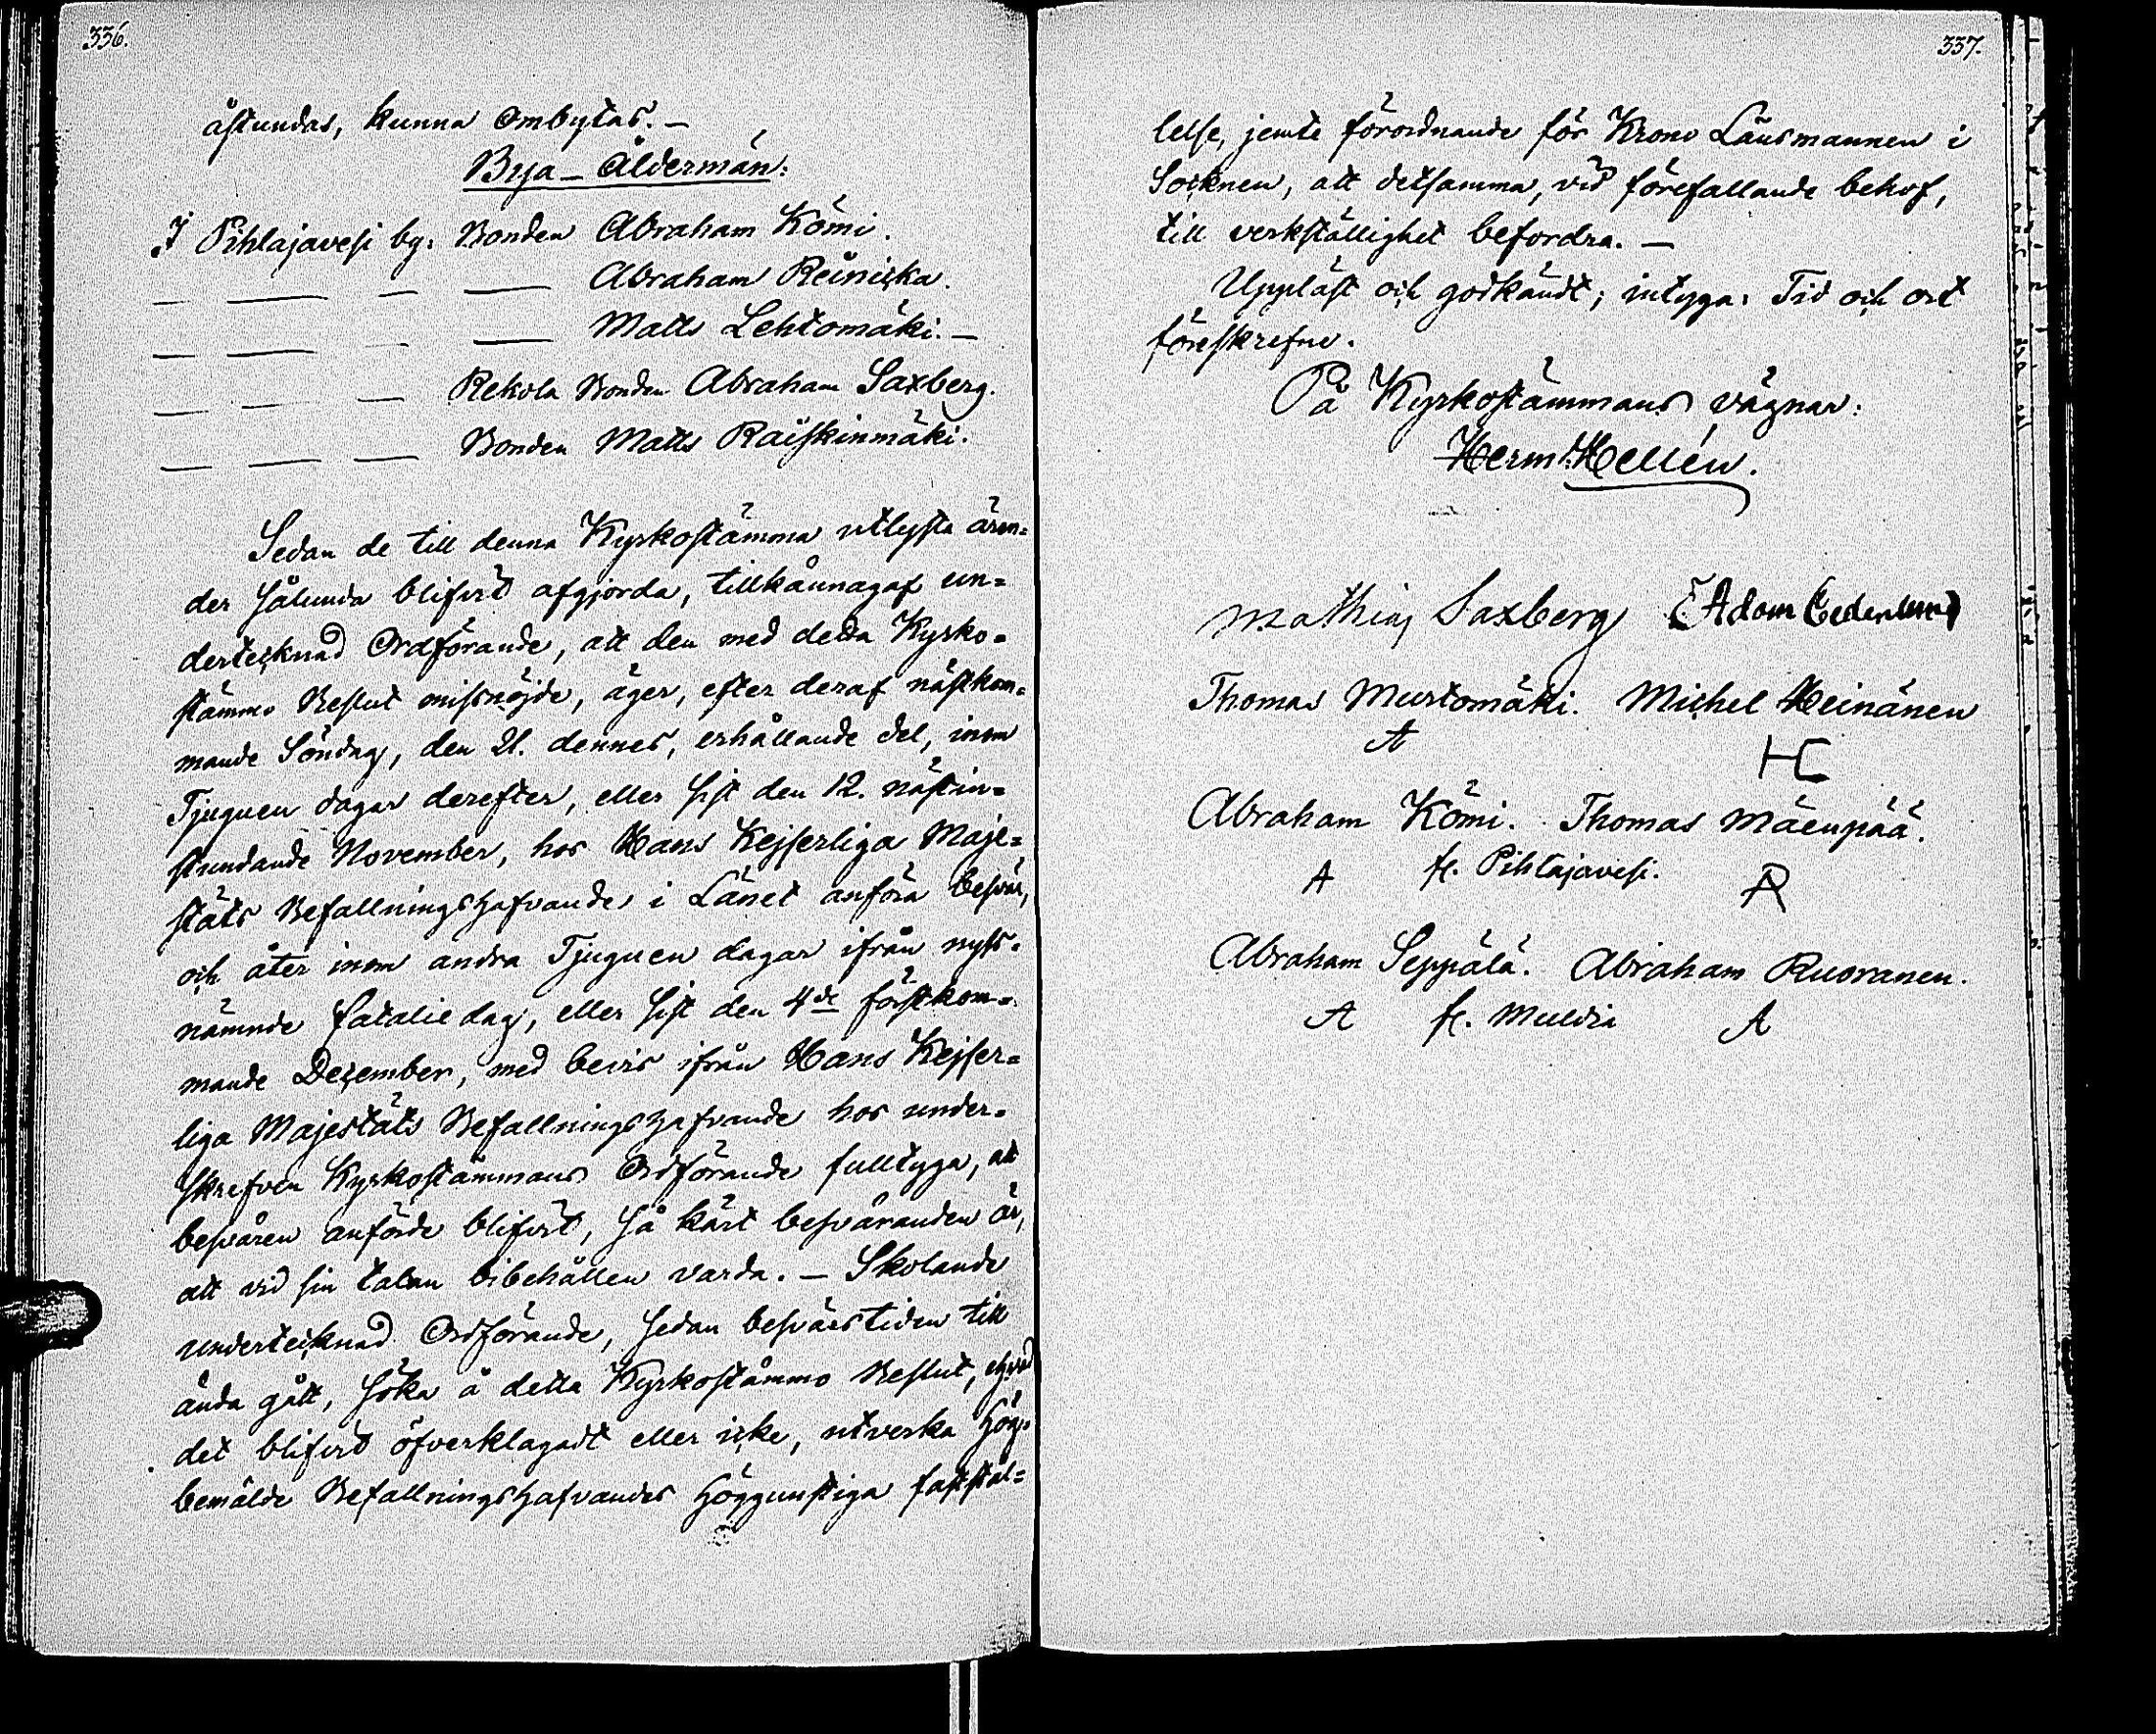 336.
åstundas, kunna ombytas. —
Bya - Åldermän:
I Pihlajavesi by: Bonden Abraham Kömi.
— — — — Abraham Reinicka.
— — — — Matts Lehtomäki. —
— — — Rekola Bonden Abraham Saxberg.
— — — Bonden Matts Raiskinmäki.
Sedan de till denna Kyrkostämma utlysta ären=
der sålunda blifvit afgjorda, tillkännagaf un=
dertecknad Ordförande, att den med detta Kyrko=
stämmo Beslut missnöjde, äger, efter deraf nästkom=
mande Söndag, den 21. dennes, erhållande del, inom
Tjuguen dagar derefter, eller sist den 12. nästin=
stundande November, hos Hans Kejserliga Maje=
stäts Befallningshafvande i Länet anföra besvär,
och åter inom andra Tjuguen dagar ifrån nyss=
nämnde fataliedag, eller sist den 4de förstkom=
mande December, med bevis ifrån Hans Kejser=
liga Majestäts Befallningshafvande hos under=
skrefven Kyrkostämmans Ordförande fulltyga, att
besvären anförde blifvit, så kärt besväranden är,
att vid sin talan bibehållen varda. — Skolande
undertecknad Ordförande, sedan besvärstiden till
ända gått, söka å detta Kyrkostämmo Beslut, ehvad
det blifvit öfverklagadt eller icke, utverka Hög=
bemälde Befallningshafvandes höggunstiga faststäl=
337.
lelse, jemte förordnande för Krono Länsmannen i
Socknen, att detsamma, vid förefallande behof,
till verkställighet befordra. —
Uppläst och godkändt; intyga: Tid och ort
föreskrefne.
På Kyrkostämmans vägnar:
Herm: Hellén.
Mathias Saxberg Adam Cederlund
Thomas Murtomäki. Michel Heinänen
A H
Abraham Kömi. Thomas Mäenpää.
A fr. Pihlajavesi. R
Abraham Seppälä. Abraham Ruoranen.
A fr. Muldia A